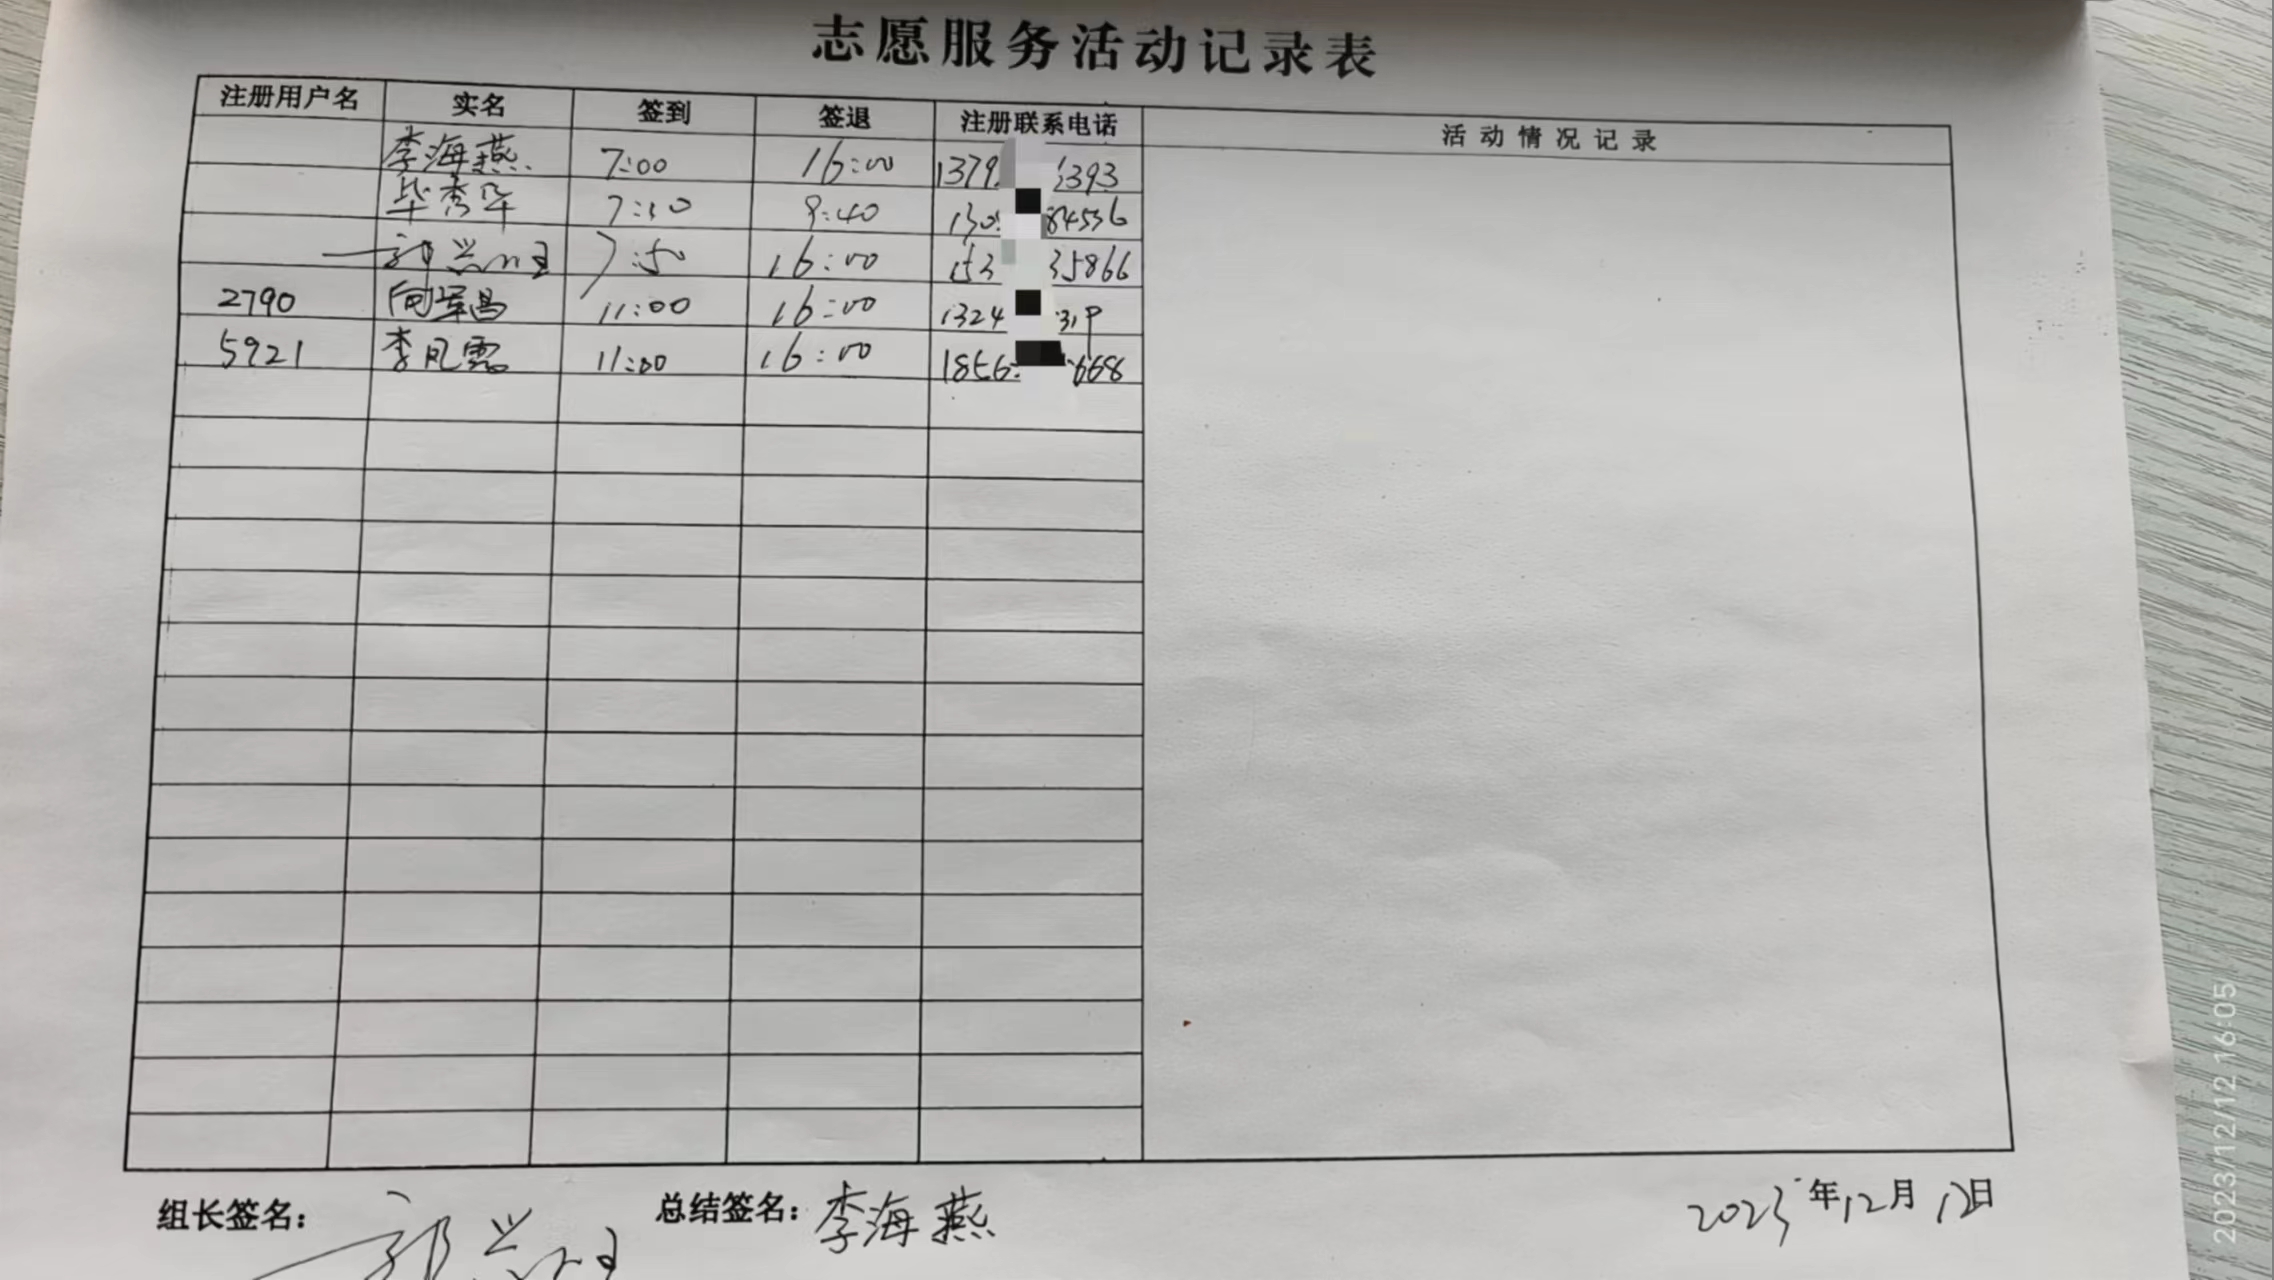 志愿服务活动记录表
注册用户名 实名 签到 签退 注册联系电话 活动情况记录
李海燕 7:00 16:00 1379 393
毕秀华 7:30 9:40 130 84536
7:50 16:00 153 35866
2790 11:00 16:00 1324 319
5921 李凤霞 11:00 16:00 1856 668
组长签名： 总结签名：李海燕 2023年12月12日
2023/12/12 16:05